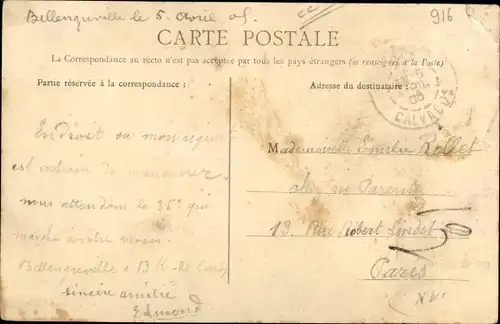 Bellengreville le 5 Avril 05
916
CARTE POSTALE
La Correspondance au recto n'est pas acceptée par tous les pays étrangers (se renseigner à la Poste)
Partie réservée à la correspondance :
Adresse du destinataire :
CALVADOS
Endroit ou mon régiment
est entrain de manœuvrer
nous attendons le 36e qui
marche contre nous.
Bellengreville à 13 K. de Caen
sincère amitié
Edmond
Mademoiselle Emilie Rollet
chez ses Parents
13 Rue Robert Lindet
Paris
XVe